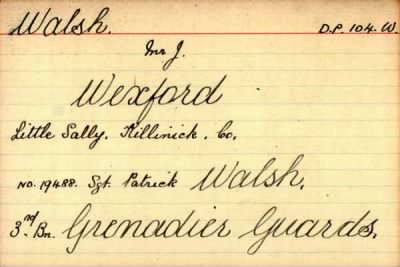 Walsh. D.P. 104. W.
Mr J.
Wexford
Little Sally, Killinick, Co.
No. 19488. Sgt. Patrick Walsh,
3rd Bn. Grenadier Guards.